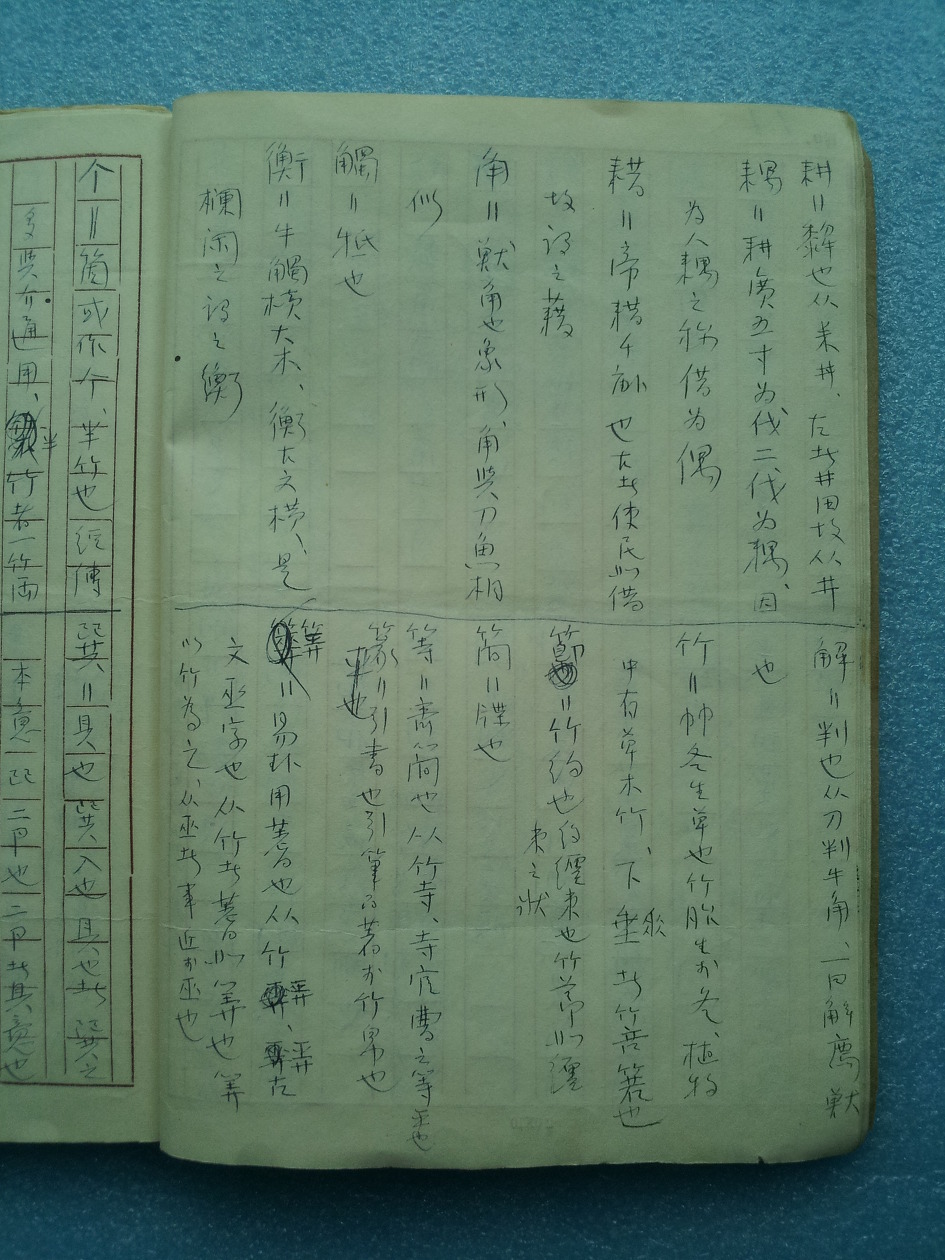 耕〃犂也从耒井、古者井田故从井
耦〃耕廣五寸為伐二伐為耦、因
為人耦之称借為偶
耤〃帝耤千畝也古者使民如借
故謂之藉
角〃獸角也象形、角與刀魚相
似
觸〃牴也
衡〃牛觸橫大木、衡大文橫、是
欄闲之謂之衡
解〃判也从刀判牛角、一曰解廌獸
也
竹〃帥冬生草也竹胎生於冬、植物
中有草木竹、下垂者竹箁箬也
節〃竹約也約纏束也竹節如纏
束之狀
簡〃牒也
等〃齊簡也从竹寺、寺官曹之等平也
篆〃引書也引筆而著於竹帛也
筭〃易卦用蓍也从竹
文巫字也从竹者蓍如筭也筭
以竹為之、从巫者事近於巫也
个〃箇或作个、半竹也經傳
多與介通用、半竹者一竹兩
巽〃具也巽入也具也者巽之
本意 二卪也二卪者具意也